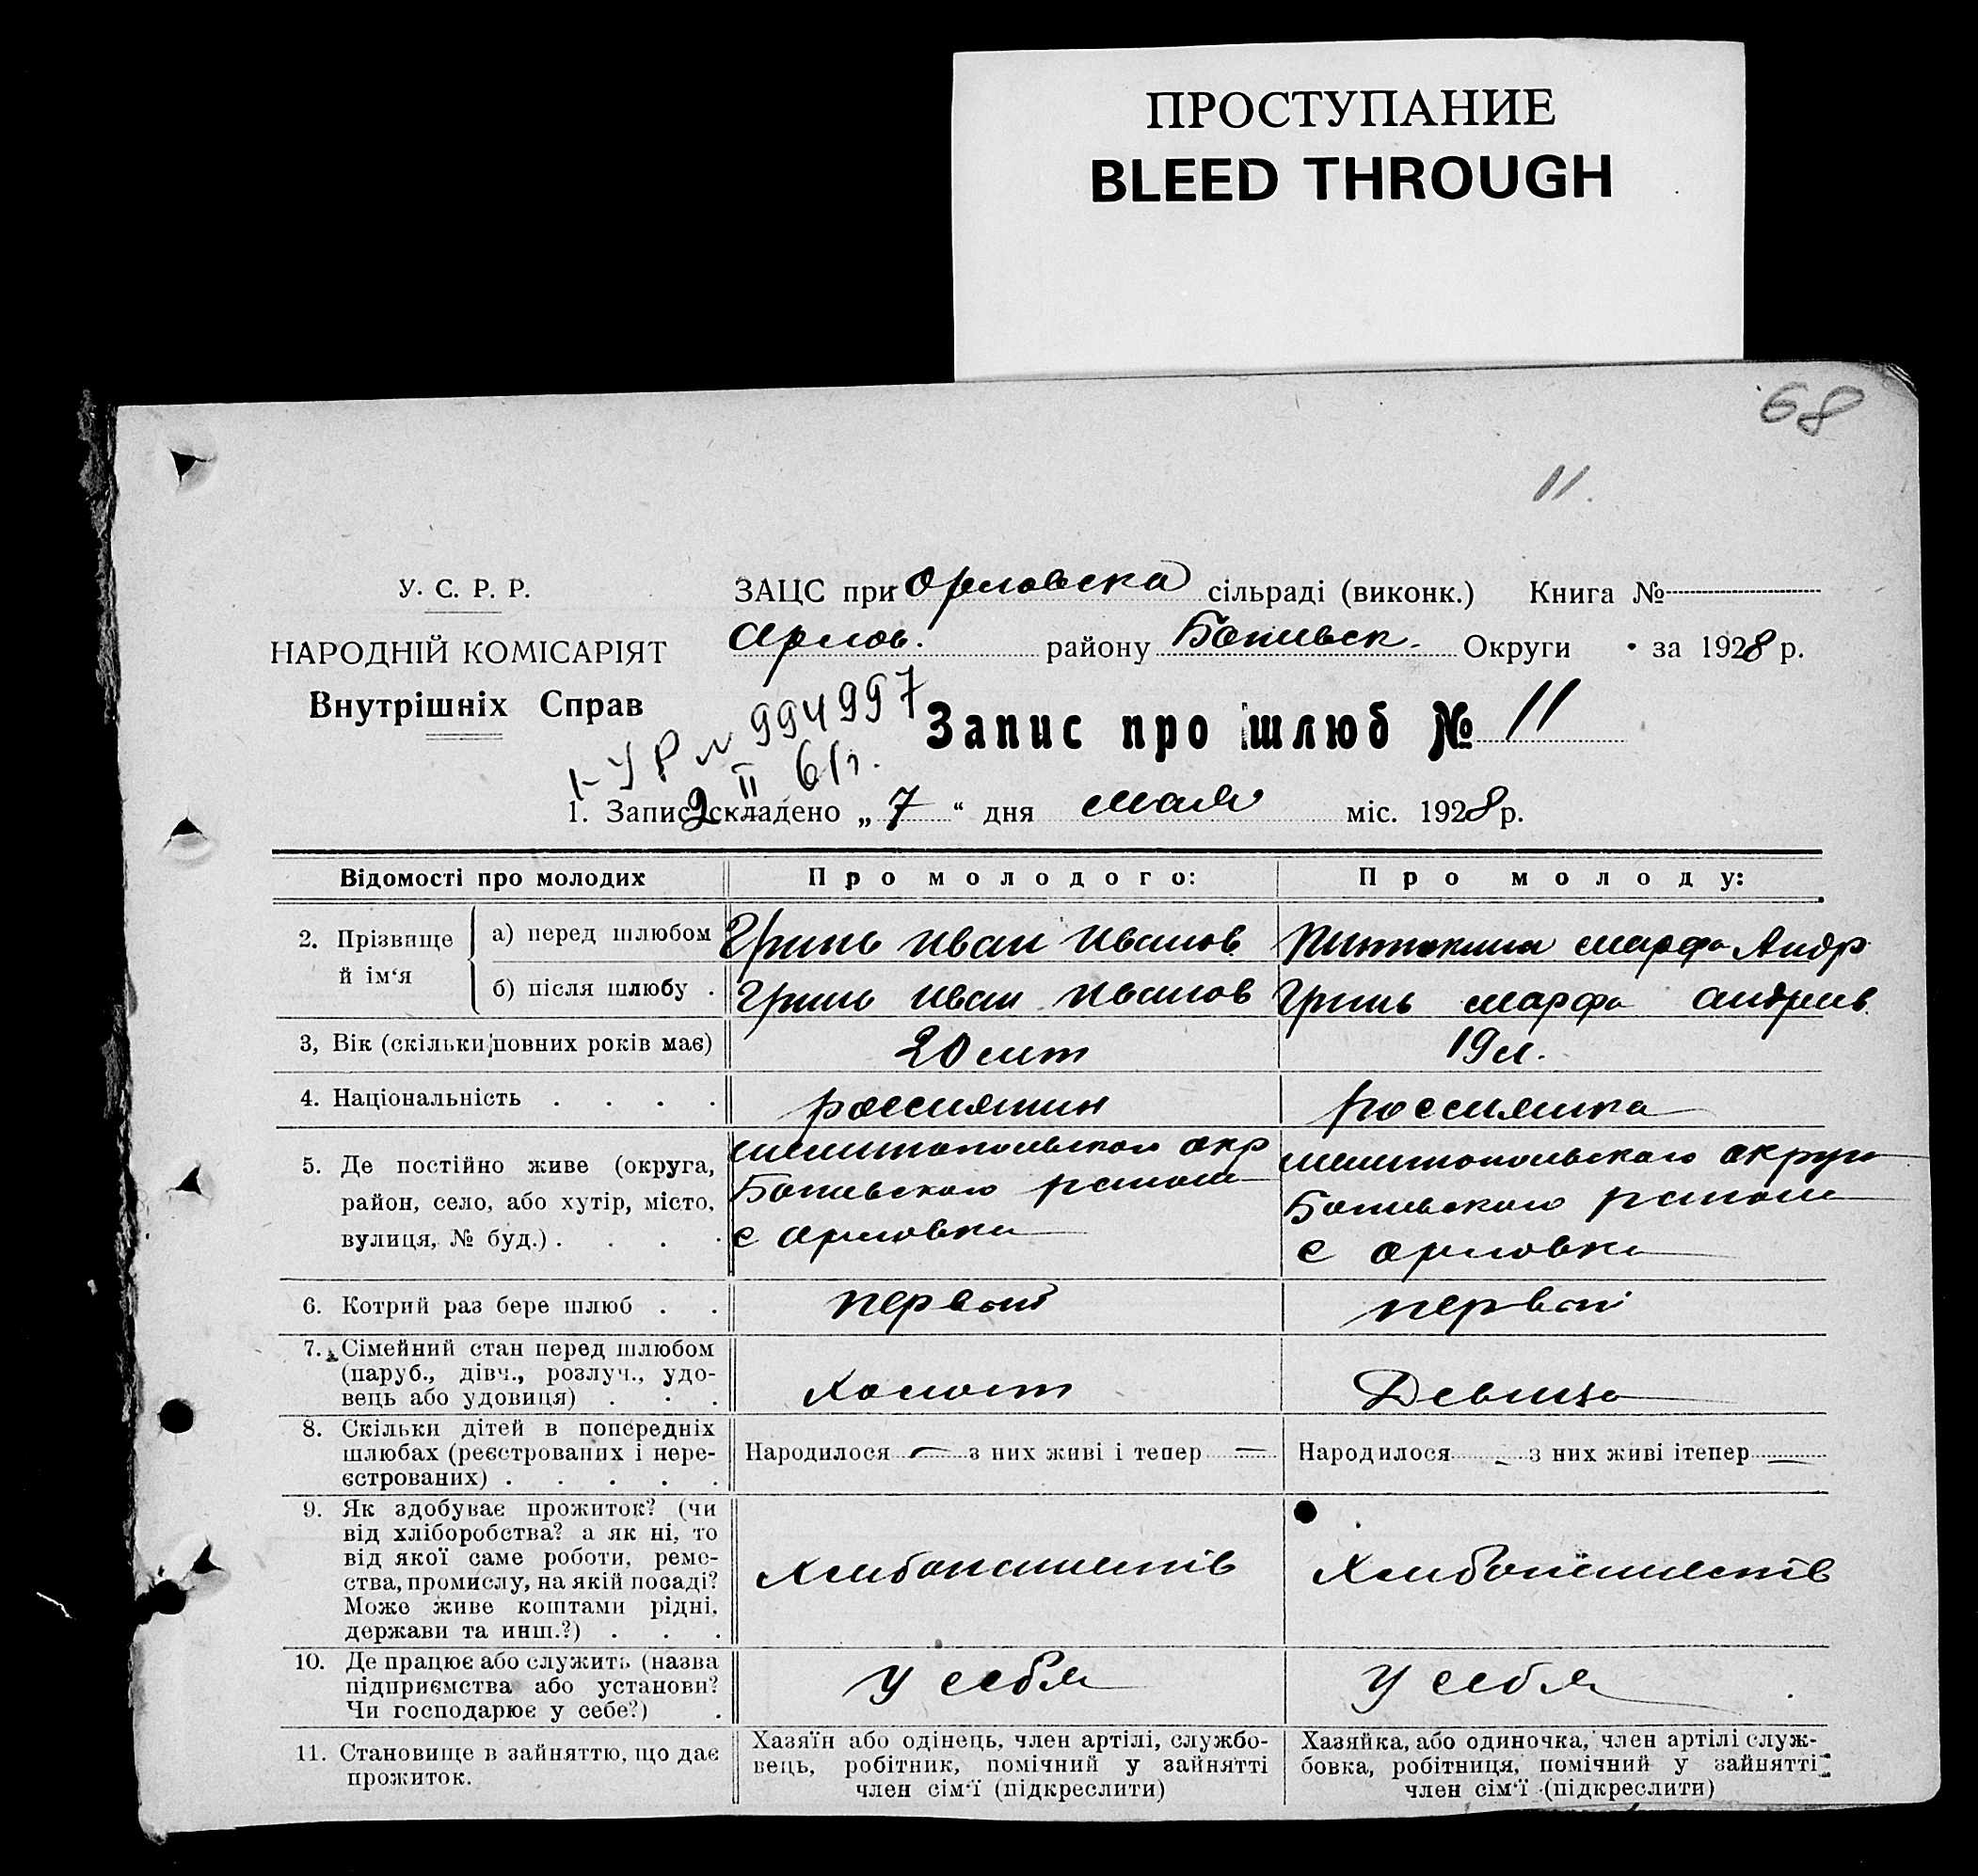 ПРОСТУПАНИЕ
BLEED THROUGH
68
11.
У. С. Р. Р.
НАРОДНІЙ КОМІСАРІЯТ
Внутрішніх Справ
ЗАЦС при Орловска сільраді (виконк.) Книга №
Орлов. району Ботиевск. Округи за 1928 р.
№ 994997
2 II 61г.
Запис про шлюб № 11
1. Запис складено „ 7 “ дня мая міс. 1928 р.
Відомості про молодих Про молодого: Про молоду:
2. Прізвище й ім‘я
а) перед шлюбом Гринь Иван Иванов. Марфа Андр
б) після шлюбу . Гринь Иван Иванов Гринь Марфа Андреев.
3, Вік (скільки повних років має) 20 лет 19 л.
4. Національність . . . . россиянин россиянка
5. Де постійно живе (округа, район, село, або хутір, місто, вулиця, № буд.) . . . .
Мелитопольского окр
Ботиевского района
с Орловка
Мелитопольского округа
Ботиевского района
с Орловка
6. Котрий раз бере шлюб . . первый первый
7. Сімейний стан перед шлюбом
(паруб., дівч., розлуч., удо-
вець або удовиця) . . . Холост Девица
8. Скільки дітей в попередніх
шлюбах (реєстрованих і нере-
єстрованих) . . . . .
Народилося — з них живі і тепер —
Народилося — з них живі ітепер —
9. Як здобуває прожиток? (чи
від хліборобства? а як ні, то
від якої саме роботи, реме-
ства, промислу, на якій посаді?
Може живе коштами рідні,
держави та инш.?) . . .
Хлебопашеств
Хлебопашеств
10. Де працює або служить (назва
підприємства або установи?
Чи господарює у себе?) .
у себя
у себя
11. Становище в зайняттю, що дає
прожиток.
Хазяїн або одінець, член артілі, службо-
вець, робітник, помічний у зайнятті
член сім‘ї (підкреслити)
Хазяйка, або одиночка, член артілі служ-
бовка, робітниця, помічний у зайнятті
член сім‘ї (підкреслити)